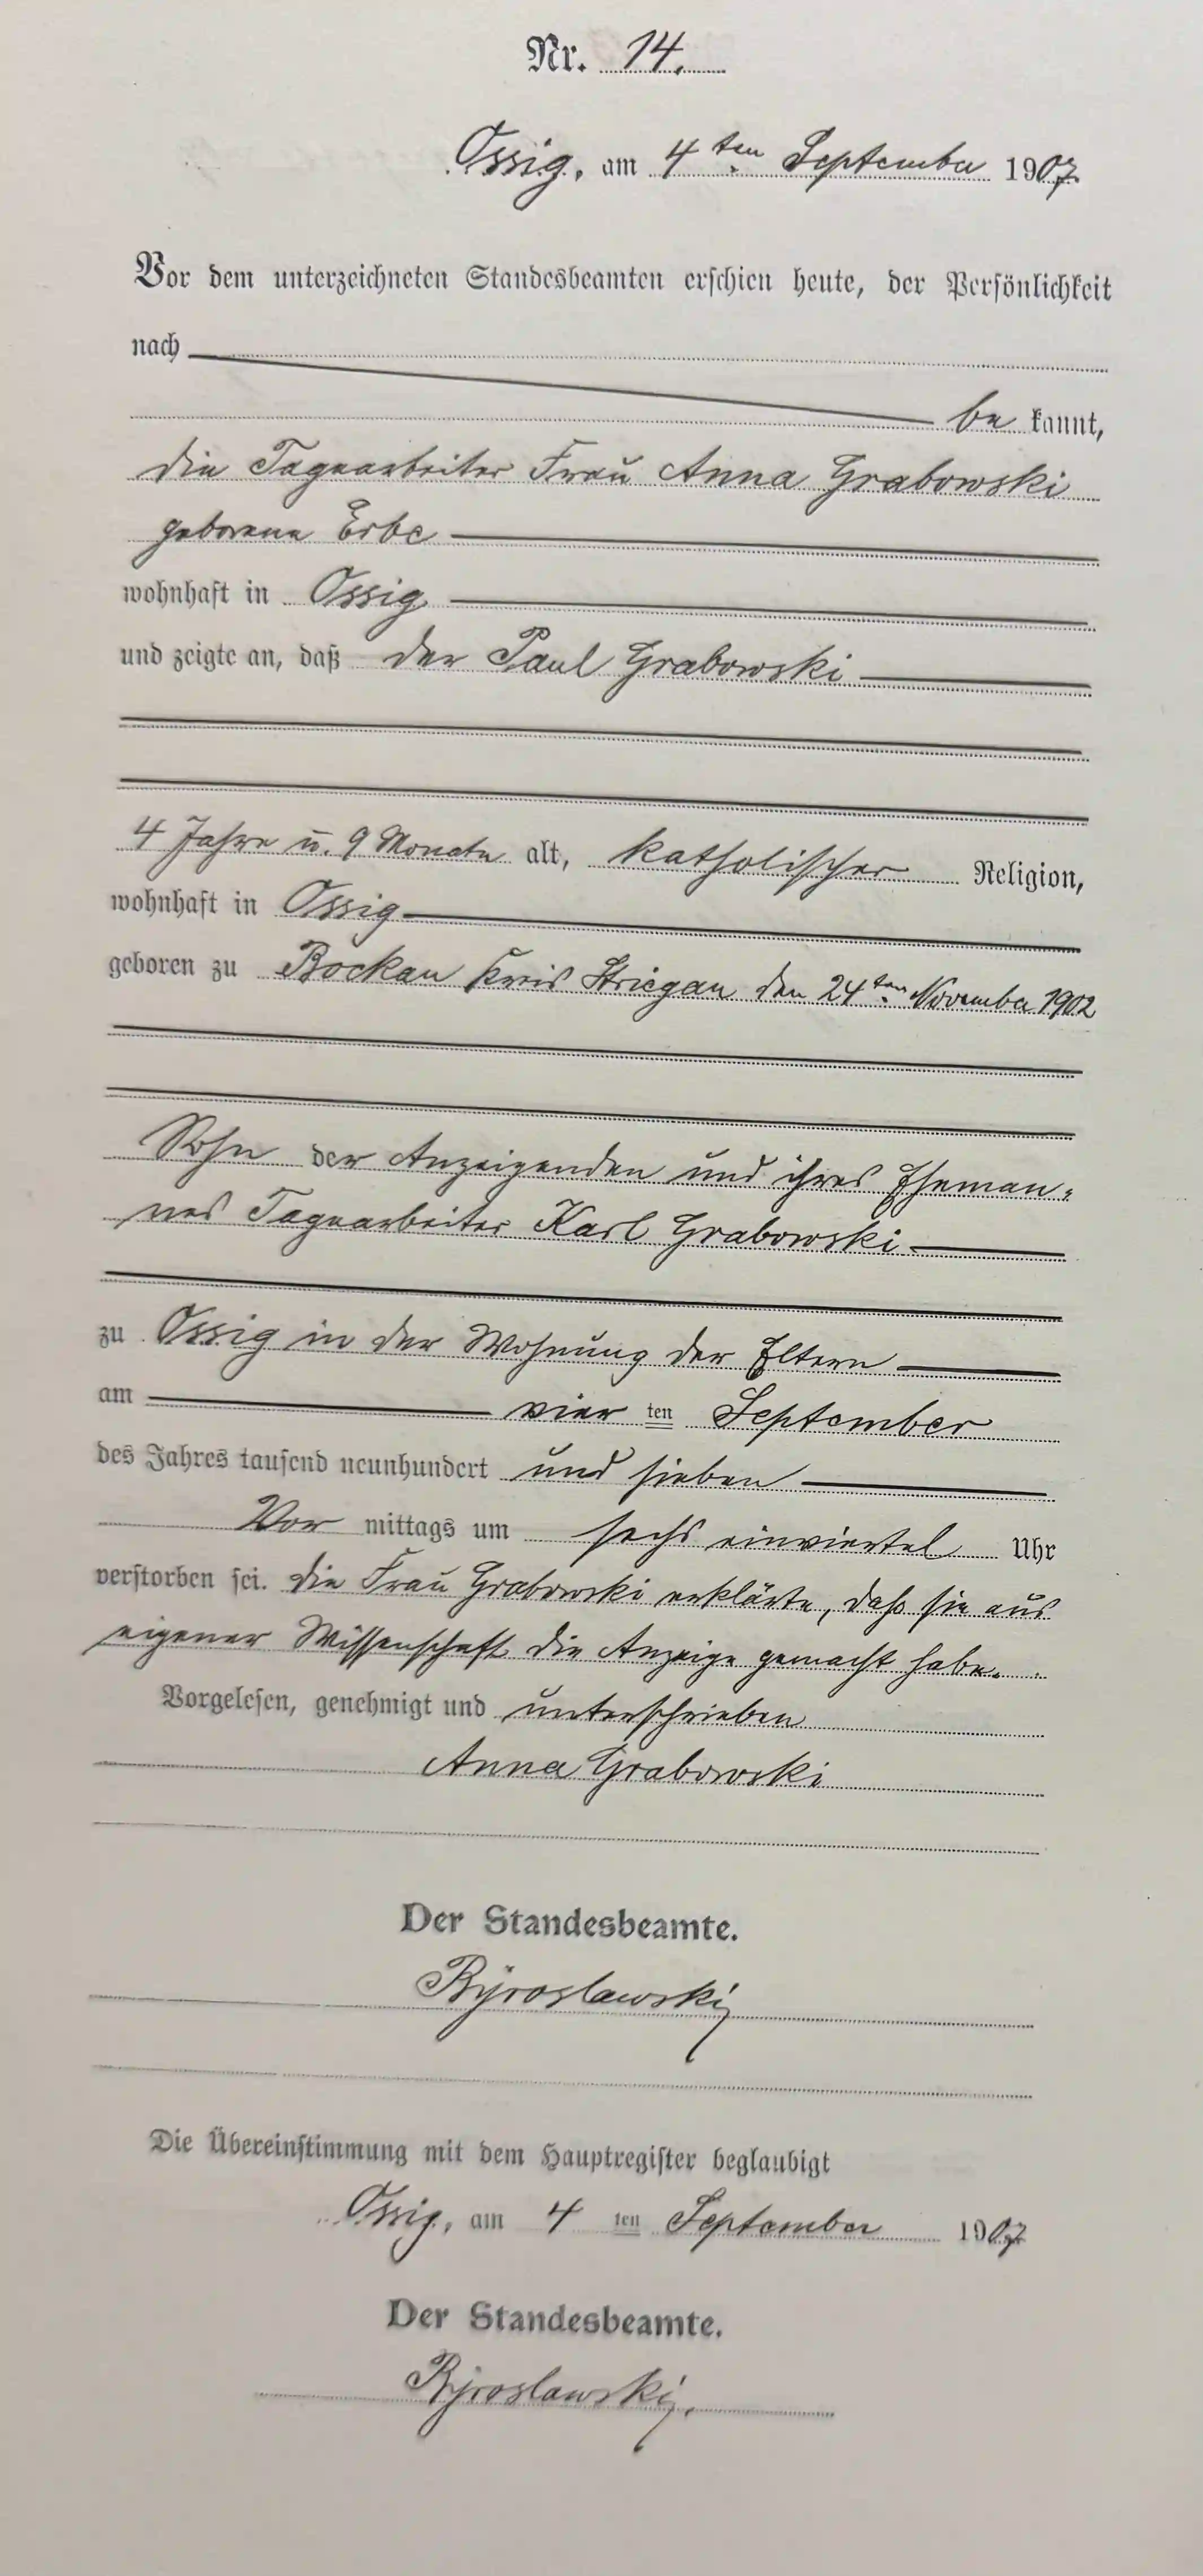 Nr. 14.
Ossig, am 4ten September 1907
Vor dem unterzeichneten Standesbeamten erschien heute, der Persönlichkeit
nach
be kannt,
die Tagearbeiter Frau Anna Grabowski
geborene Erbe
wohnhaft in Ossig
und zeigte an, daß der Paul Grabowski
4 Jahre u. 9 Monate alt, katholischer Religion,
wohnhaft in Ossig
geboren zu Bockau Kreis Striegau den 24ten November 1902
Sohn der Anzeigenden und ihres Eheman-
nes Tagearbeiter Karl Grabowski
zu Ossig in der Wohnung der Eltern
am vier ten September
des Jahres tausend neunhundert und sieben
Vor mittags um sechs einviertel Uhr
verstorben sei. Die Frau Grabowski erklärte, daß sie aus
eigener Wissenschaft die Anzeige gemacht habe.
Vorgelesen, genehmigt und unterschrieben
Anna Grabowski
Der Standesbeamte.
Die Übereinstimmung mit dem Hauptregister beglaubigt
Ossig, am 4 ten September 1907
Der Standesbeamte.